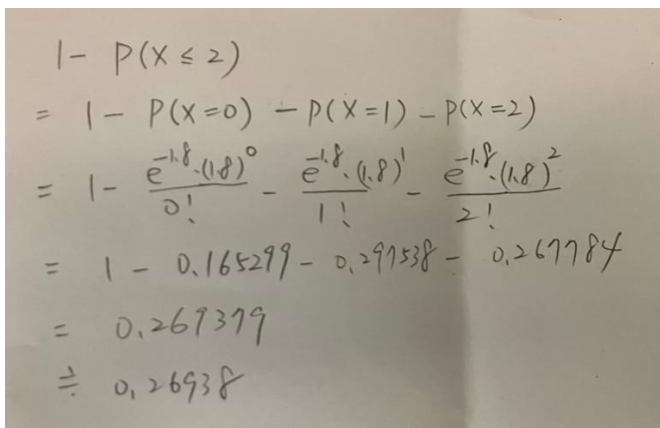 1 - P(X ≤ 2)
= 1 - P(X=0) - P(X=1) - P(X=2)
= 1 - e^-1.8·(1.8)^0 / 0! - e^-1.8·(1.8)^1 / 1! - e^-1.8·(1.8)^2 / 2!
= 1 - 0.165299 - 0.297538 - 0.267784
= 0.269379
≑ 0.26938